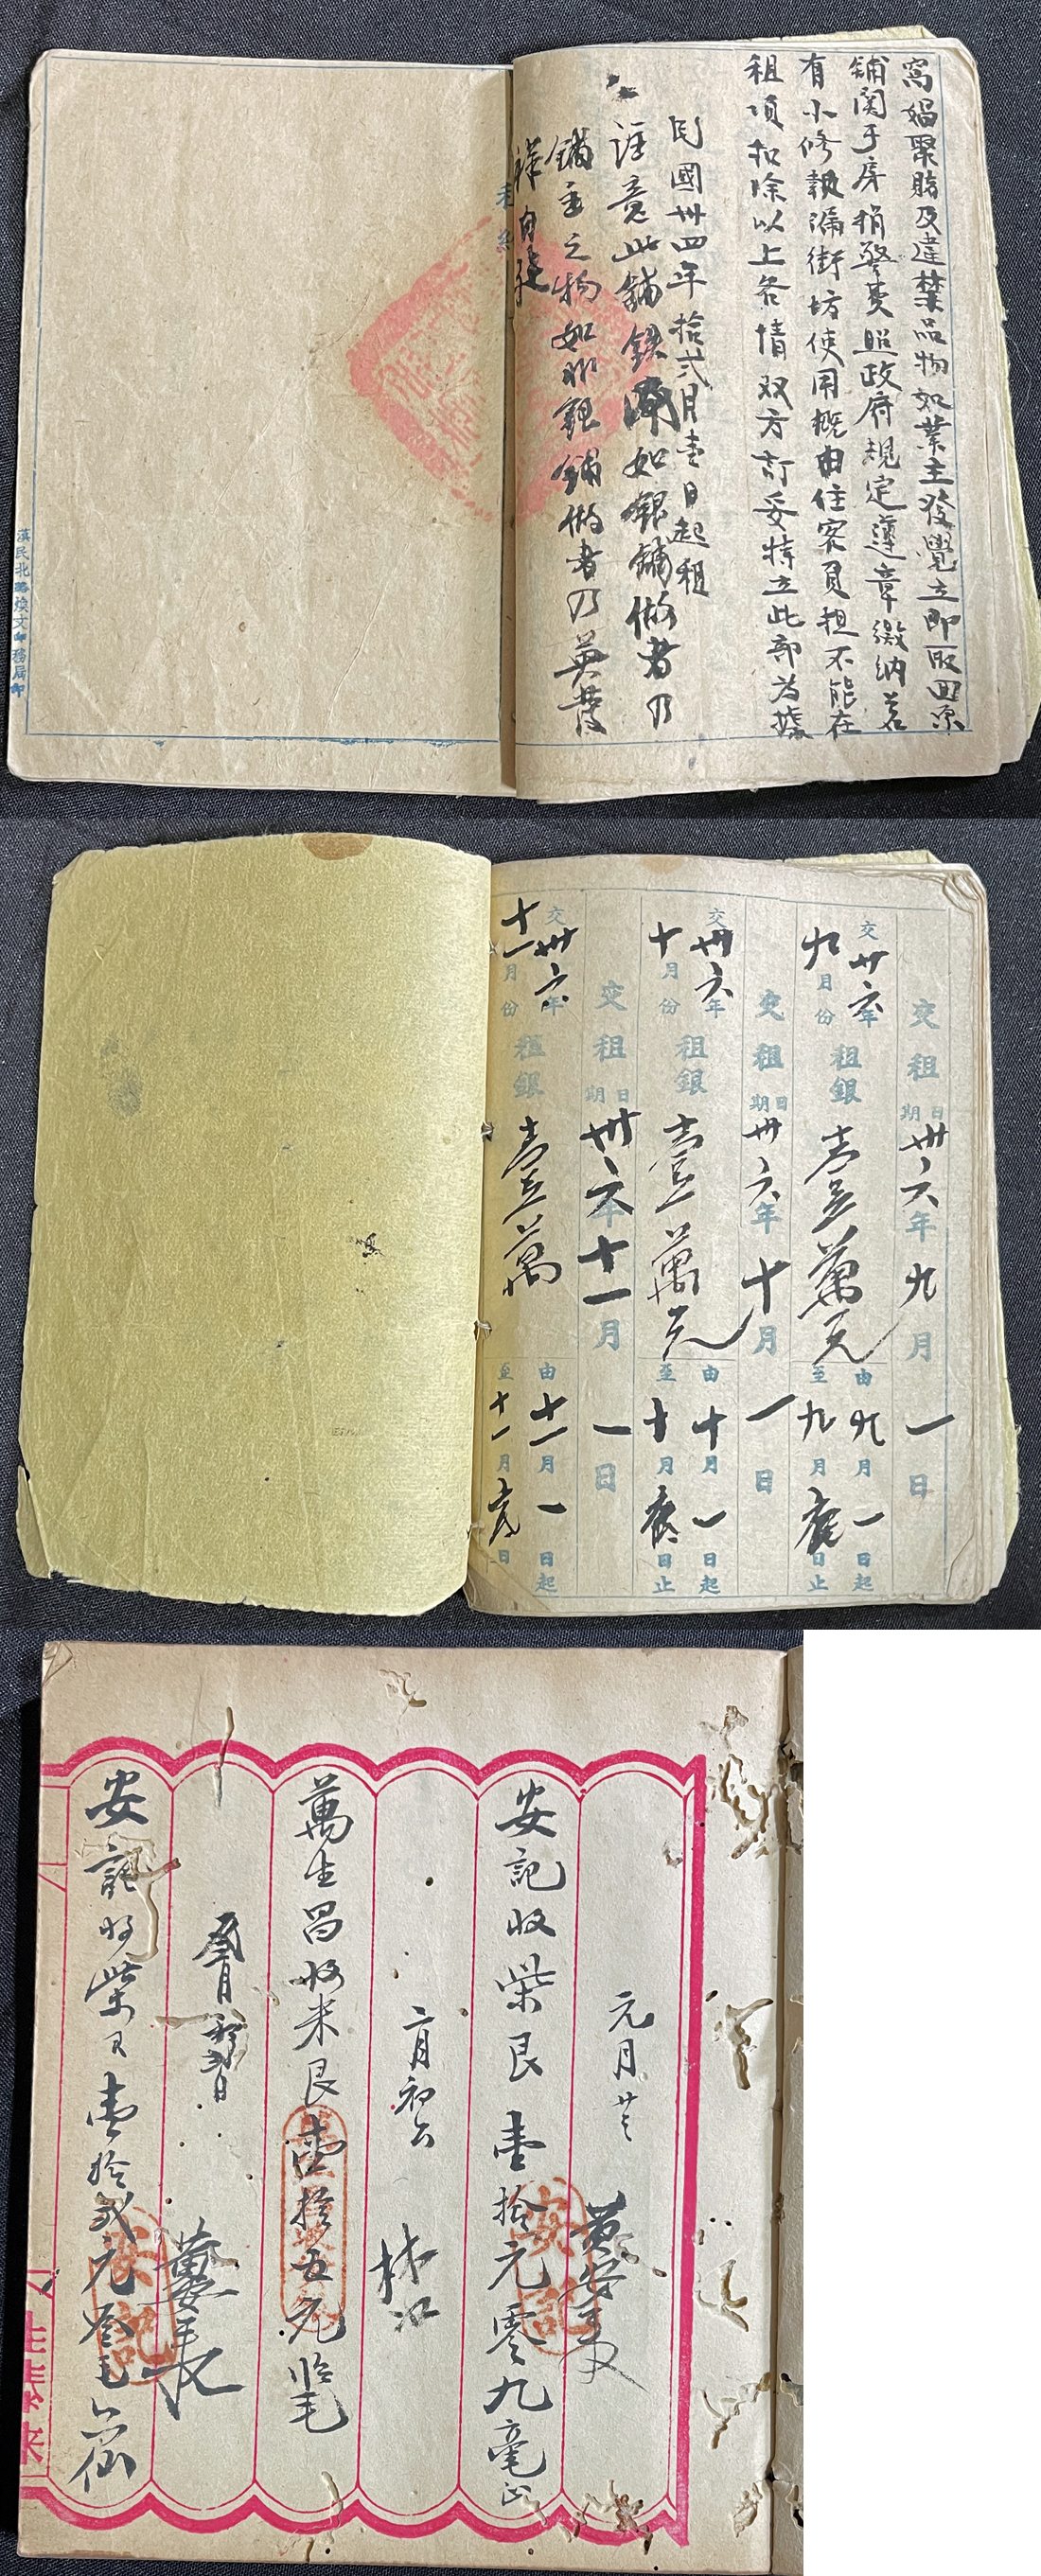 窩娼聚賭及違禁品物如業主發覺立即取回原
鋪関于房捐警費照政府規定遵章繳納若
有小修執漏街坊使用概由住客負担不能在
租項扣除以上各情双方訂妥特立此部為據
民國卅四年拾弍月壹日起租
注意此鋪鉄閘如銀鋪做者乃
鋪主之物如非銀鋪做者乃英發
祥自
漢民北路煥文印務局印
交租日期卅六年九月一日
交卅六年九月份租銀壹萬元由九月一日起至九月底日止
交租日期卅六年十月一日
交卅六年十月份租銀壹萬元由十月一日起至十月底日止
交租日期卅六年十一月一日
交卅六年十一月份租銀壹萬由十一月一日起至十一月底日
元月廿三
安記收柴艮壹拾元零九毫正
二月初六 林江
萬生昌收米艮壹拾五元 毛
安記收柴艮壹拾弍元叁毛六仙
安記
往來